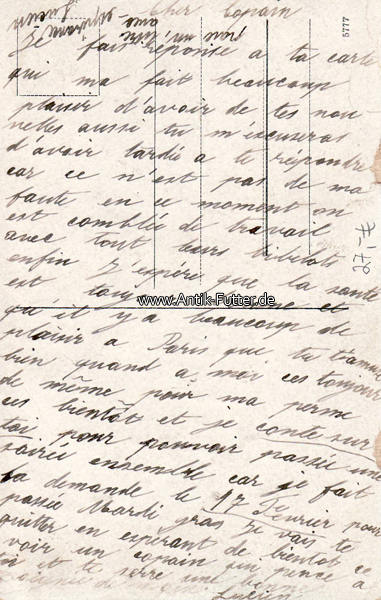 Cher Copain
Je fais réponse a ta carte
qui ma fait beaucoup
plaisir d'avoir de tes nou
velles aussi tu m'excuseras
d'avoir tardée a te répondre
car ce n'est pas de ma
faute en ce moment on
est comblée de travail
avec tout leurs bibelots
enfin J'espère que la santé
est toujours et
qu'il y a beaucoup de
plaisir a Paris que tu
bien quand a moi ces toujours
de même pour ma perme
ces bientôt et je conte sur
toi pour pouvoir passée une
soirée ensemble car je fait
la demande le 17 Fevrier pour
passée Mardi gras Je vais te
quitter en espérant de bientôt ce
voir un copain qui pense a
toi et te serre une bonne
poignée de
Lucien
Lucien
5777
27,-€
www.Antik-Futter.de